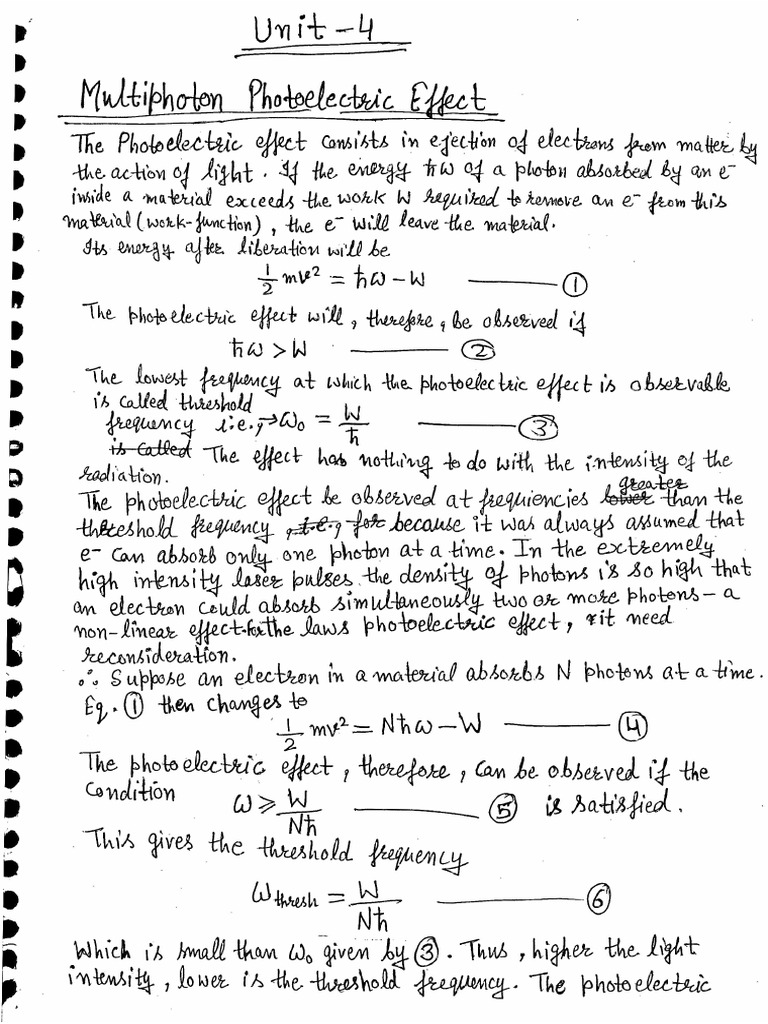 Unit-4
Multiphoton Photoelectric Effect
The Photoelectric effect consists in ejection of electrons from matter by
the action of light. If the energy ħω of a photon absorbed by an e⁻
inside a material exceeds the work W required to remove an e⁻ from this
material (work-function), the e⁻ will leave the material.
Its energy after liberation will be
1/2 mv² = ħω - W ——— ①
The photoelectric effect will, therefore, be observed if
ħω > W ——— ②
The lowest frequency at which the photoelectric effect is observable
is called threshold
frequency i.e., → ω₀ = W/ħ ——— ③
is called The effect has nothing to do with the intensity of the
radiation.
greater
The photoelectric effect be observed at frequiencies lower than the
threshold frequency, i.e., for because it was always assumed that
e⁻ can absorb only one photon at a time. In the extremely
high intensity laser pulses the density of photons is so high that
an electron could absorb simultaneously two or more photons - a
non-linear effect the laws photoelectric effect, it need
reconsideration.
∴ Suppose an electron in a material absorbs N photons at a time.
Eq. ① then changes to
1/2 mv² = Nħω - W ——— ④
The photoelectric effect, therefore, can be observed if the
Condition ω ⩾ W/Nħ ——— ⑤ is satisfied.
This gives the threshold frequency
ω thresh = W/Nħ ——— ⑥
Which is small than ω₀ given by ③. Thus, higher the light
intensity, lower is the threshold frequency. The photoelectric